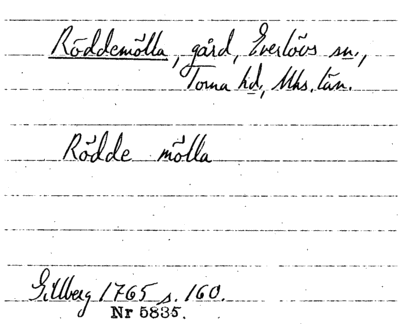 Röddemölla, gård, Everlövs sn.,
Torna hd., Mhs. län.
Rödde mölla
Gillberg 1765 s. 160.
Nr 5835.